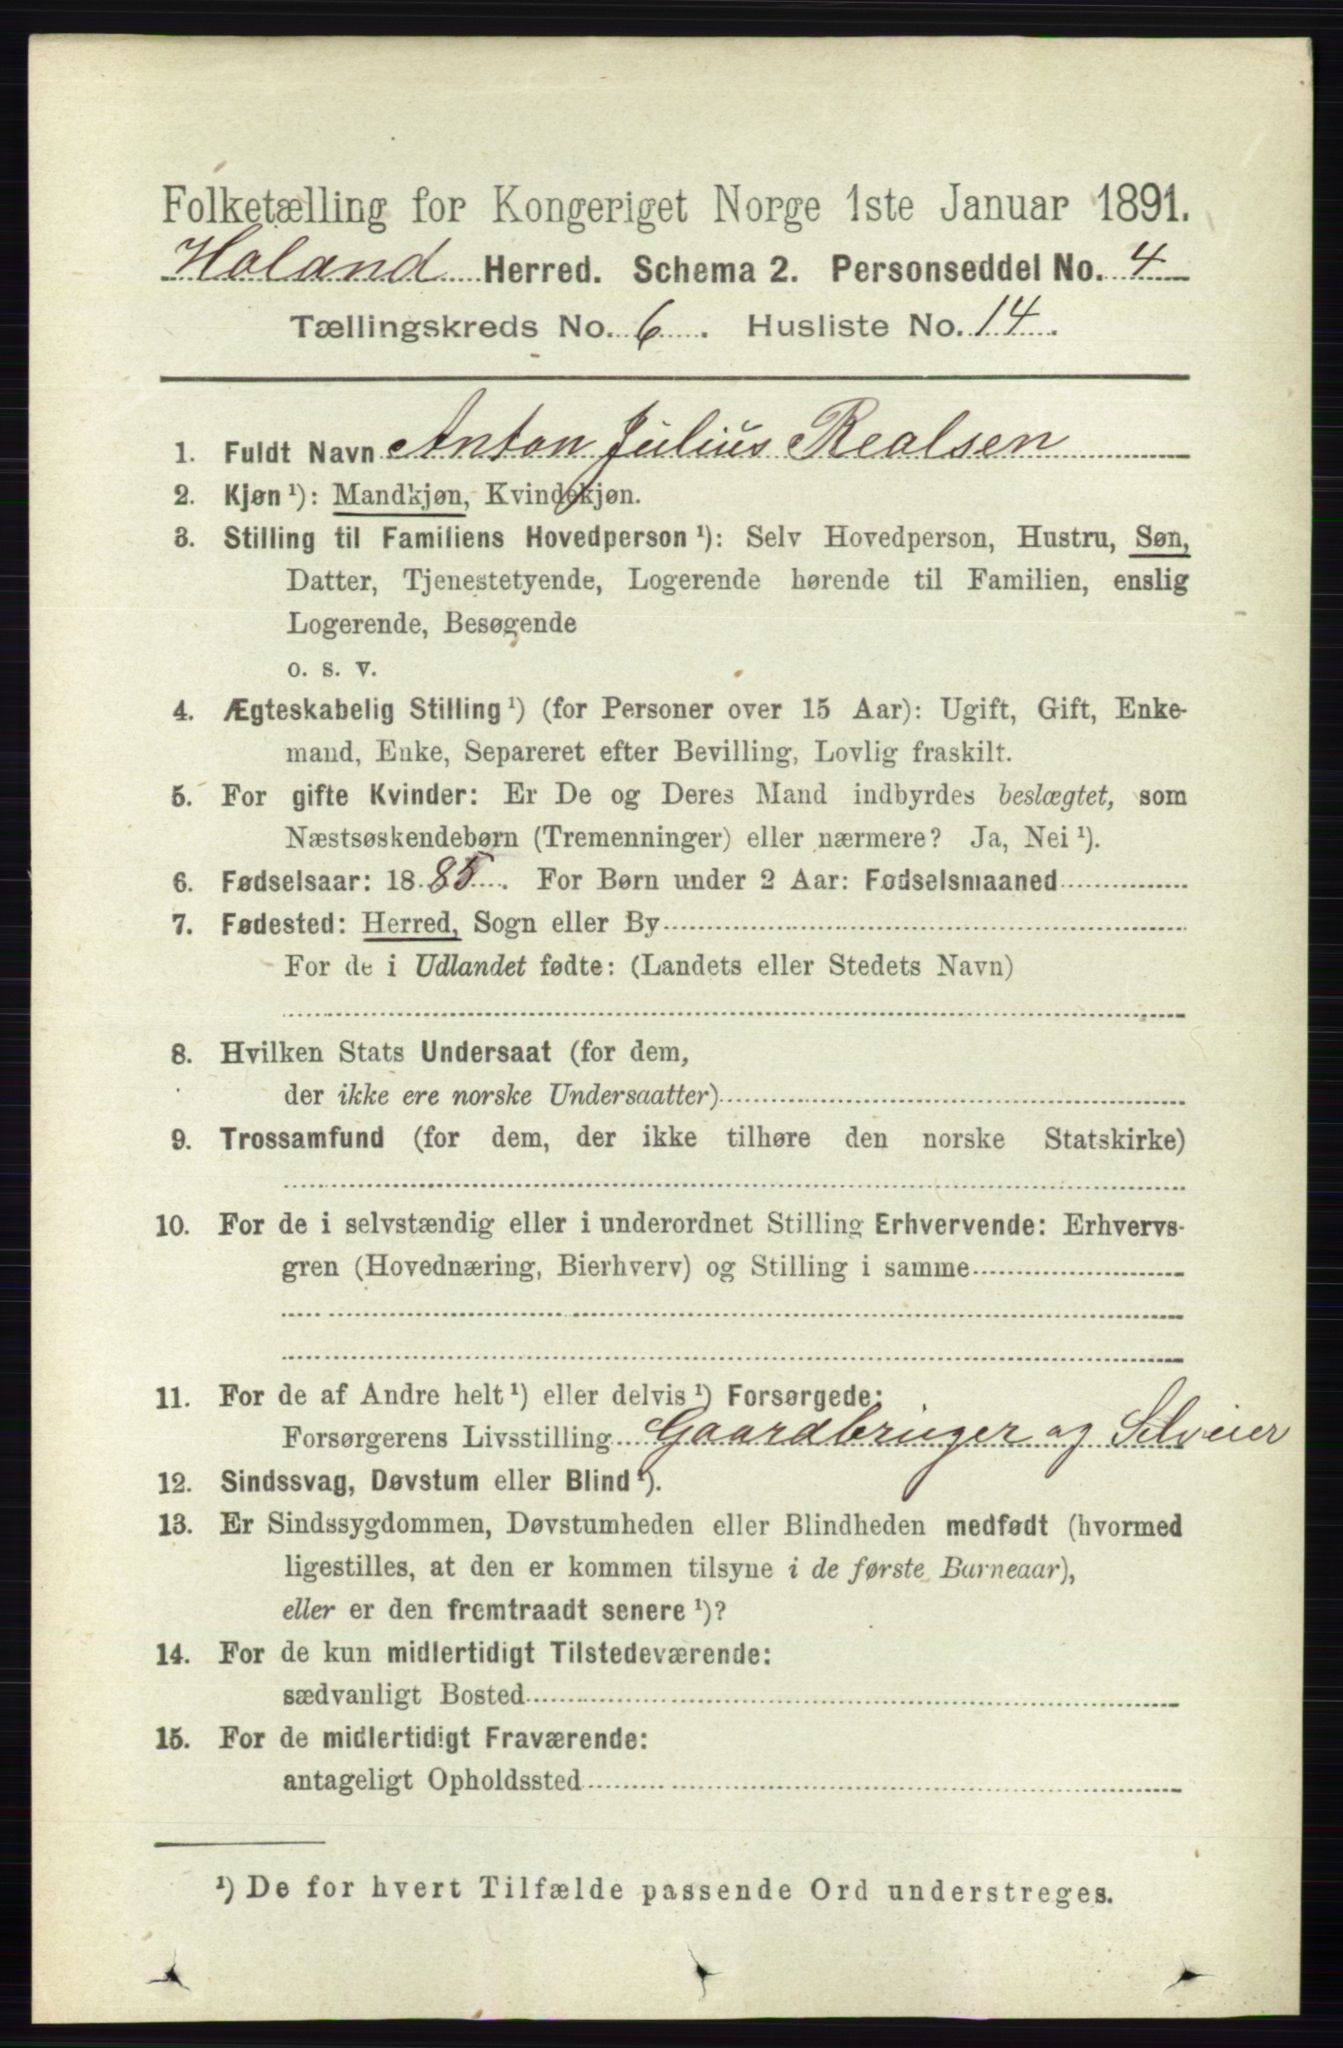 Folketælling for Kongeriget Norge 1ste Januar 1891.
Holand Herred. Schema 2. Personseddel No. 4
Tællingskreds No. 6. Husliste No. 14.
1. Fuldt Navn Anton Julius Realsen
2. Kjøn ¹): Mandkjøn, Kvindekjøn.
3. Stilling til Familiens Hovedperson ¹): Selv Hovedperson, Hustru, Søn,
Datter, Tjenestetyende, Logerende hørende til Familien, enslig
Logerende, Besøgende
o. s. v.
4. Ægteskabelig Stilling ¹) (for Personer over 15 Aar): Ugift, Gift, Enke-
mand, Enke, Separeret efter Bevilling, Lovlig fraskilt.
5. For gifte Kvinder: Er De og Deres Mand indbyrdes beslægtet, som
Næstsøskendebørn (Tremenninger) eller nærmere? Ja, Nei ¹).
6. Fødselsaar: 1885. For Børn under 2 Aar: Fødselsmaaned
7. Fødested: Herred, Sogn eller By
For de i Udlandet fødte: (Landets eller Stedets Navn)
8. Hvilken Stats Undersaat (for dem,
der ikke ere norske Undersaatter)
9. Trossamfund (for dem, der ikke tilhøre den norske Statskirke)
10. For de i selvstændig eller i underordnet Stilling Erhvervende: Erhvervs-
gren (Hovednæring, Bierhverv) og Stilling i samme
11. For de af Andre helt ¹) eller delvis ¹) Forsørgede:
Forsørgerens Livsstilling Gaardbruger og Selveier
12. Sindssvag, Døvstum eller Blind ¹).
13. Er Sindssygdommen, Døvstumheden eller Blindheden medfødt (hvormed
ligestilles, at den er kommen tilsyne i de første Barneaar),
eller er den fremtraadt senere ¹)?
14. For de kun midlertidigt Tilstedeværende:
sædvanligt Bosted
15. For de midlertidigt Fraværende:
antageligt Opholdssted
¹) De for hvert Tilfælde passende Ord understreges.